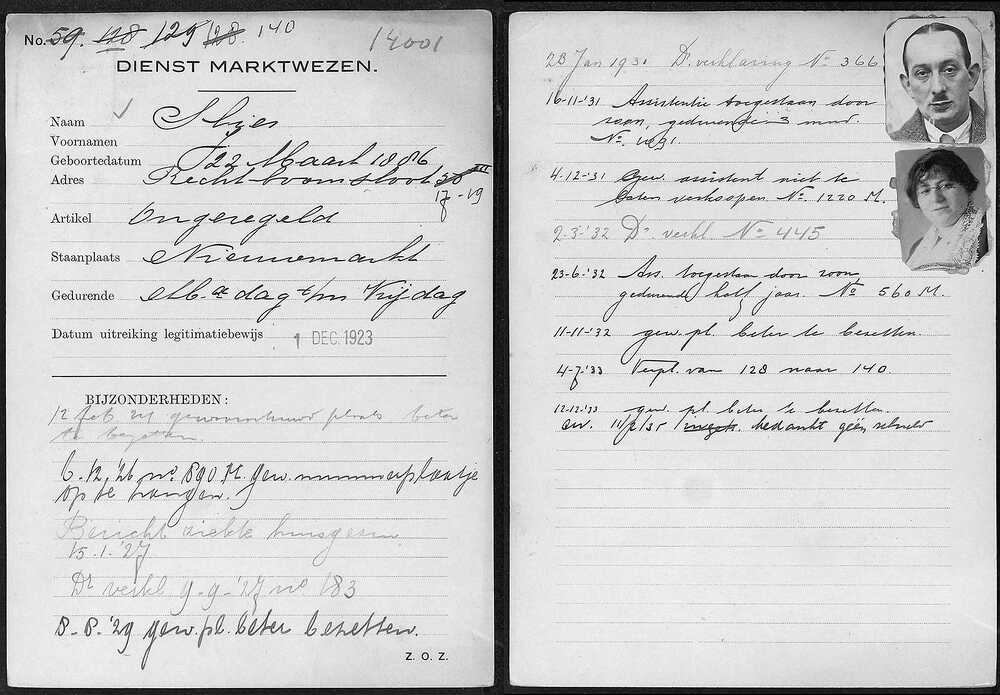 No. 59. 128 129 128. 140
14001
DIENST MARKTWEZEN.
Naam Slijes
Voornamen J
Geboortedatum 22 Maart 1886
Adres Rechtboomsloot 38 III
17-19
Artikel Ongeregeld
Staanplaats Nieuwmarkt
Gedurende Ma.dag t/m Vrijdag
Datum uitreiking legitimatiebewijs 1 DEC. 1923
BIJZONDERHEDEN:
12 feb 24 gewaarschuwd plaats beter
te bezetten.
6.12.'26 no. 890 M. gew. nummerplaatje
op te hangen.
Bericht ziekte huisgezin
15.1.'27
Dr verkl 9-9-'27 no 183
8-8-'29 gew. pl. beter bezetten.
Z. O. Z.
28 Jan 1931 Dr. verklaring No 366
16-11-'31 Assistentie toegestaan door
zoon, gedurende 3 mnd.
No. 1191.
4-12-'31 Gew. assistent niet te
laten verkoopen No. 1220 M.
2-3-'32 Dr verkl No 445
23-6-'32 Ass. toegestaan door zoon,
gedurend half jaar. No 560 M.
11-11-'32 gew. pl. beter te bezetten.
4-7-'33 Verpl. van 128 naar 140.
12-12-'33 gew. pl. beter te bezetten.
11/2/35 bedankt géén schuld